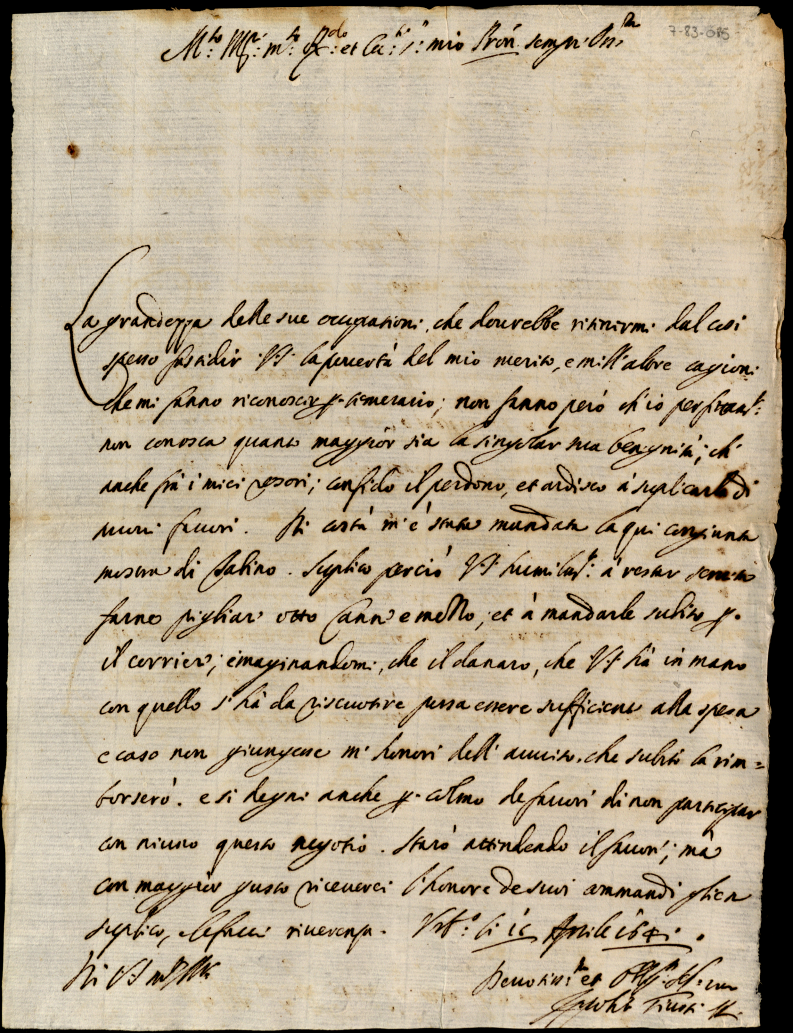 7-83-
mio sempr
La grandezza delle sue occupationi, che dourebbe ritinermi dal cosi
spesso fastidir V.S. la pouertà del mio merito, e mill'altre cagioni
che mi fanno riconoscer p. temerario; non fanno però ch'io
non conosca quanto maggior sia la singolar sua benignità; ch'
anche frà i miei confido il perdono, et ardisco à suplicarla di
nuoui fauori. Di costà m'è stata mandata la qui congiunta
mostra di Suplico perciò V.S. humilm.te à restar
farne pigliar otto Canne e mezzo, et à mandarle subito p.
il corriero; e imaginandomi, che il danaro, che V.S. hà in mano
con quello s'hà da riscuotere possa essere sufficiente alla spesa
e caso non giungesse m'honori dell'auuiso, che subito la rim=
borserò. e si degni anche p. colmo de fauori di non participar
con niuno questo negotio. Starò attendendo il fauor; mà
con maggior gusto riceuerei l'honore de suoi commandi glien
suplico, e le facci riuerenza. li Aprile 164
Di V.S.
Deuotiss.mo et